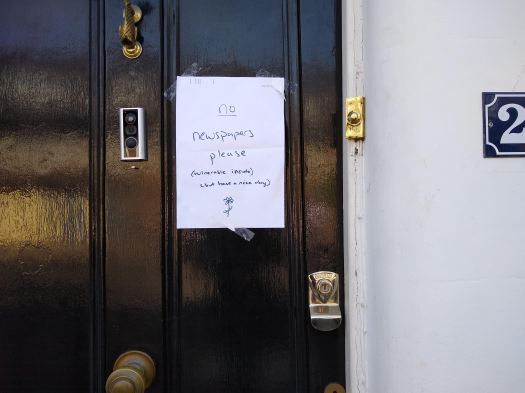 no
newspapers
please
(vulnerable inside)
(but have a nice day)
2